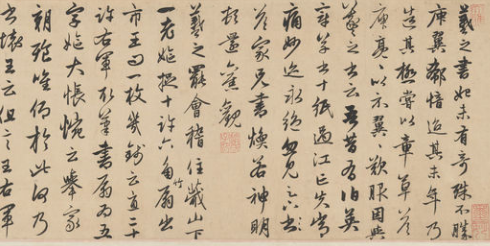 羲之書初未有奇殊不勝
庾翼郗愔迨其末年乃
造其極嘗以章草答
庾亮亮以示翼翼歎服因與
羲之書云吾昔有伯英
章草書十紙過江亡失常
痛妙迹永絕忽見足下
答家兄書煥若神明
頓還舊觀
羲之罷會稽住蕺山下
一老嫗捉十許六角竹扇出
市王問一枚幾錢云直二十
許右軍取筆書扇為五
字嫗大悵惋云舉家
朝飡唯仰於此何乃
書壞王云但言王右軍